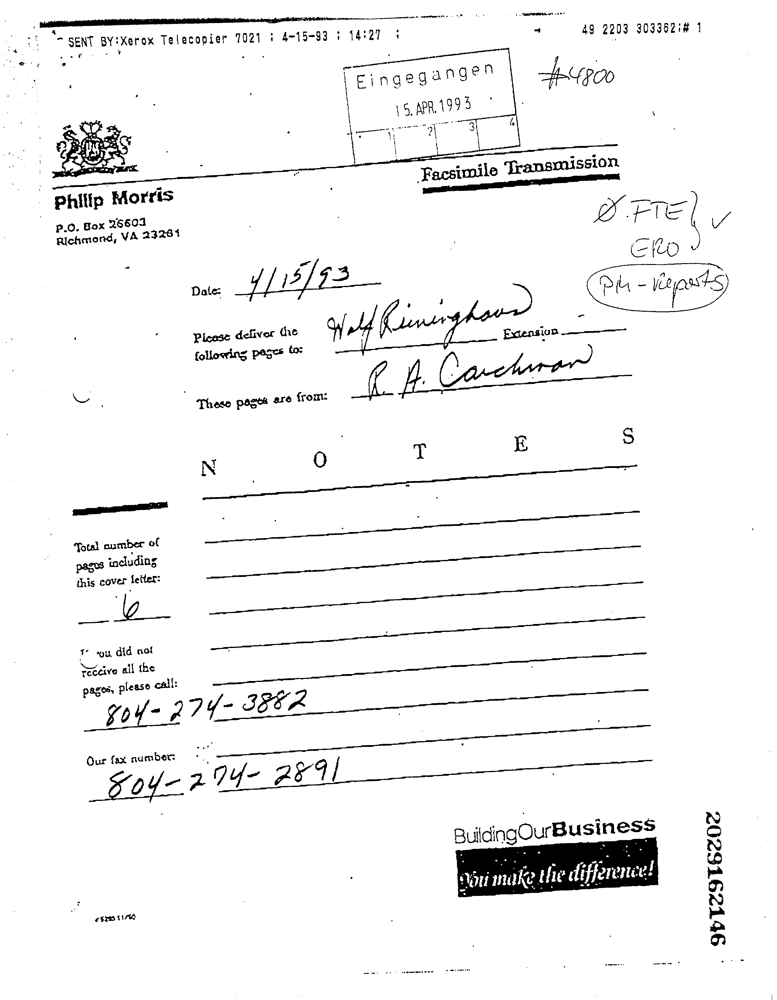 SENT BY:Xerox Telecopier 7021 ; 4-15-93 ; 14:27 ;
49 2203 303362;# 1
Eingegangen
15. APR. 1993
1 2 3 4
#4800
Facsimile Transmission
Philip Morris
P.O. Box 26603
Richmond, VA 23261
Ø. FTE
ERO
PM - Reports
Date: 4/15/93
Please deliver the
following pages to: Wolf Reininghaus Extension
These pages are from: R. A. Carchman
N O T E S
Total number of
pages including
this cover letter:
6
If you did not
receive all the
pages, please call:
804-274-3882
Our fax number:
804-274-2891
BuildingOurBusiness
You make the difference!
2029162146